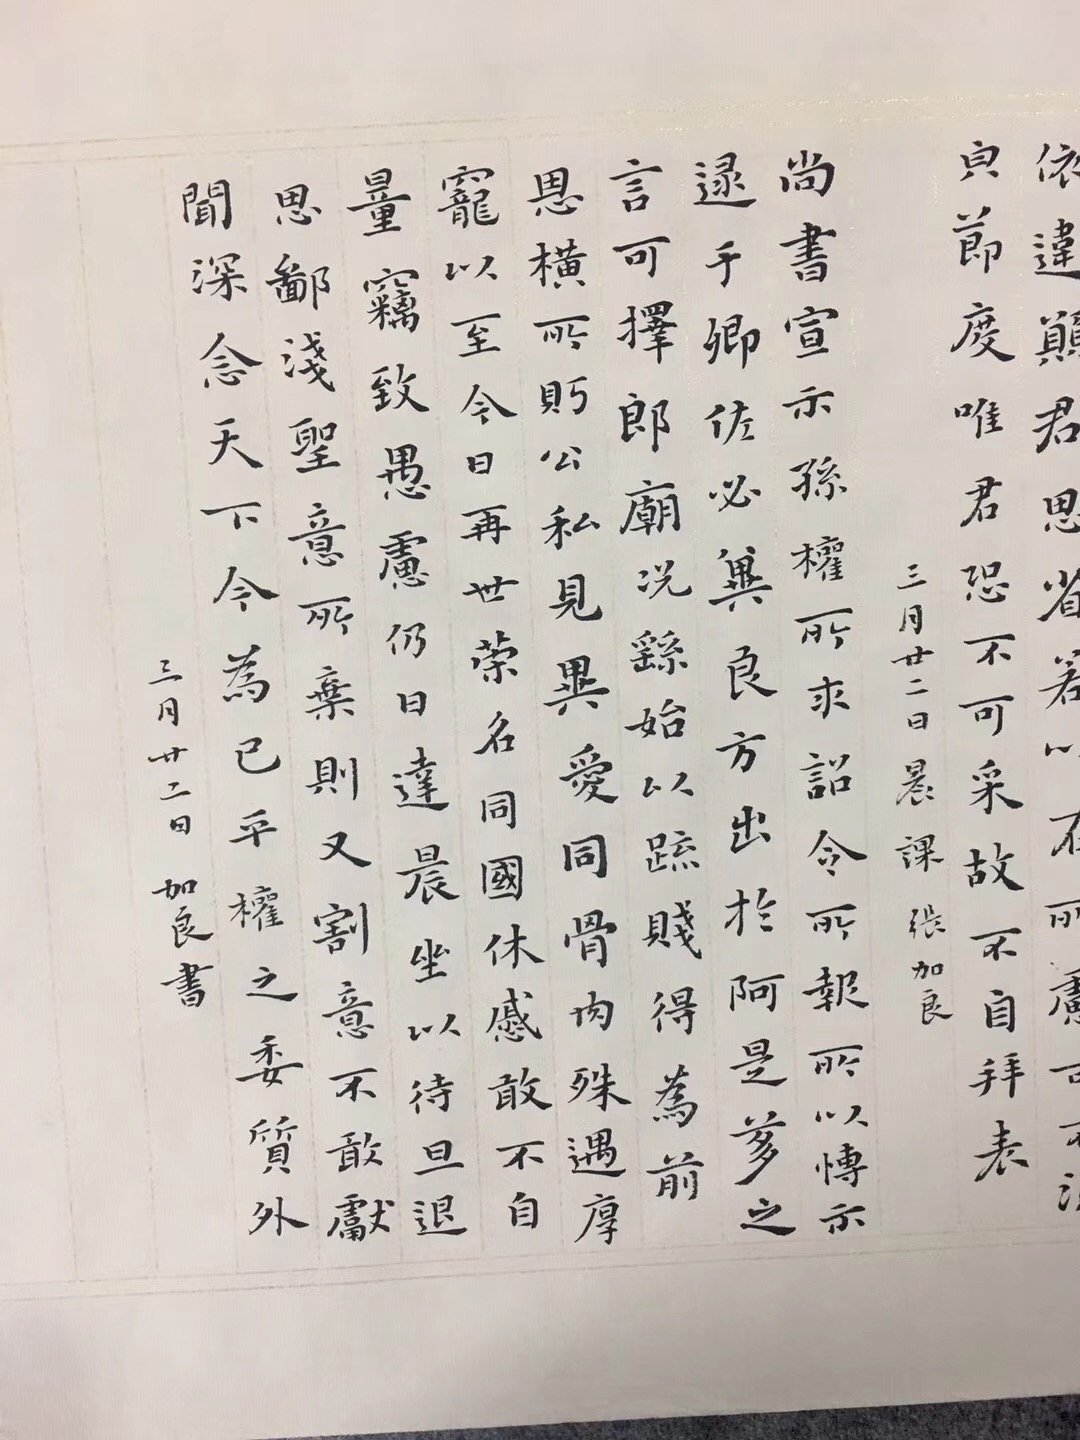 依違顛君思省若以在所慮可不須
貞節度唯君恐不可采故不自拜表
三月廿二日晨課 張加良
尚書宣示孫權所求詔令所報所以博示
逮于卿佐必冀良方出於阿是芻之
言可擇郎廟況繇始以疏賤得為前
恩橫所眄公私見異愛同骨肉殊遇厚
寵以至今日再世榮名同國休慼敢不自
量竊致愚慮仍日達晨坐以待旦退
思鄙淺聖意所棄則又割意不敢獻
聞深念天下今為已平權之委質外
三月廿二日 加良書